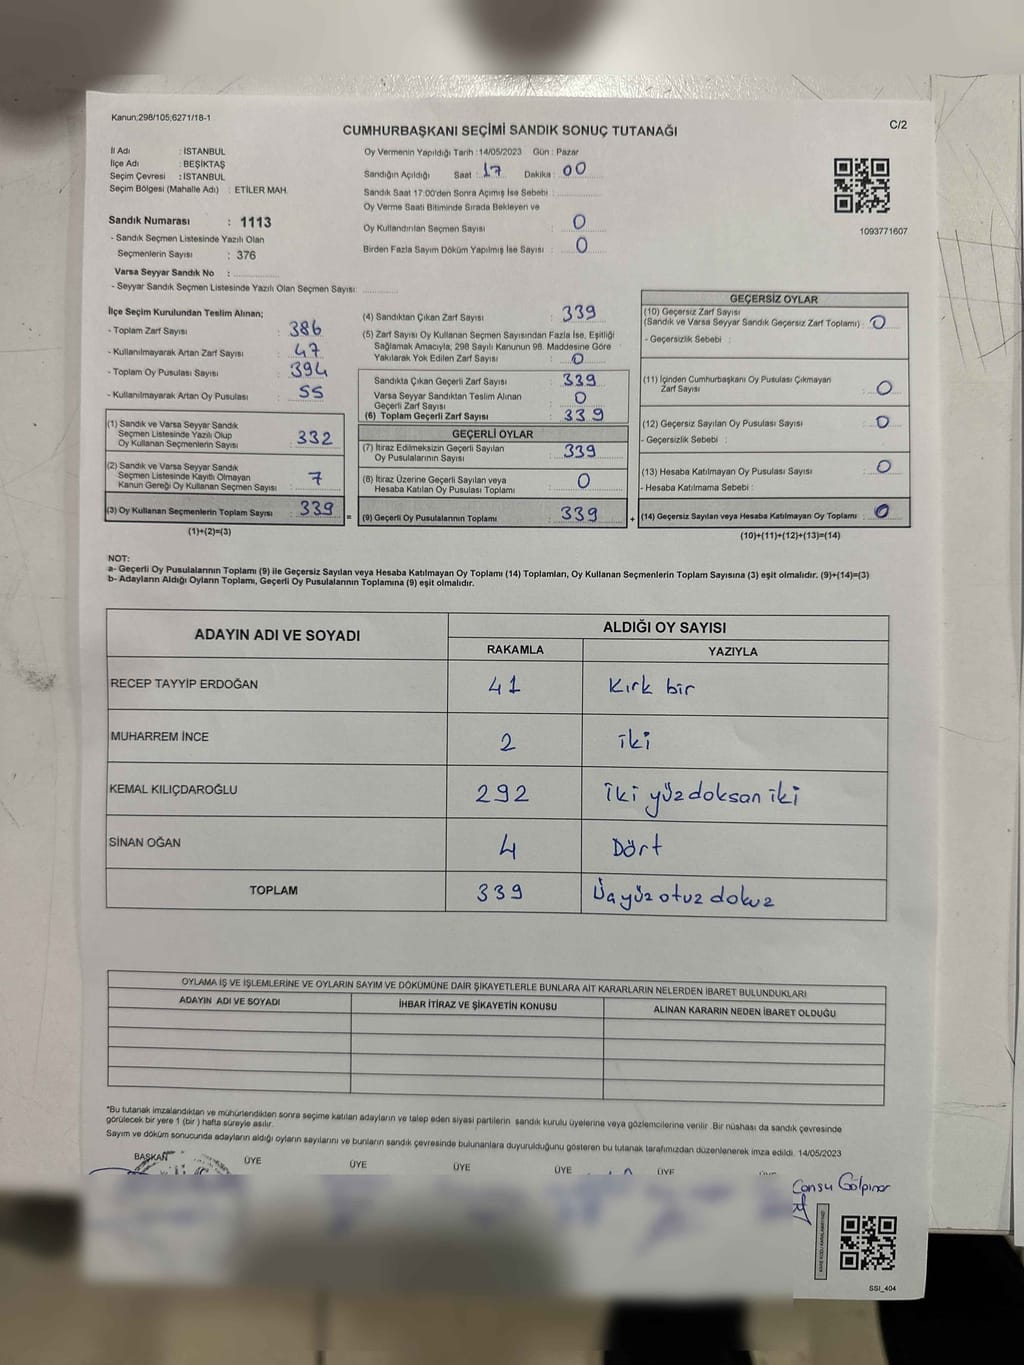 Kanun;298/105,6271/18-1
C/2
CUMHURBAŞKANI SEÇİMİ SANDIK SONUÇ TUTANAĞI
İl Adı : İSTANBUL
İlçe Adı : BEŞİKTAŞ
Seçim Çevresi : İSTANBUL
Seçim Bölgesi (Mahalle Adı) : ETİLER MAH.
Sandık Numarası : 1113
- Sandık Seçmen Listesinde Yazılı Olan
Seçmenlerin Sayısı : 376
Varsa Seyyar Sandık No :
- Seyyar Sandık Seçmen Listesinde Yazılı Olan Seçmen Sayısı:
Oy Vermenin Yapıldığı Tarih :14/05/2023 Gün : Pazar
Sandığın Açıldığı Saat : 17 Dakika : 00
Sandık Saat 17:00'den Sonra Açılmış İse Sebebi :
Oy Verme Saati Bitiminde Sırada Bekleyen ve
Oy Kullandırılan Seçmen Sayısı : 0
Birden Fazla Sayım Döküm Yapılmış İse Sayısı : 0
1093771607
İlçe Seçim Kurulundan Teslim Alınan;
- Toplam Zarf Sayısı : 386
- Kullanılmayarak Artan Zarf Sayısı : 47
- Toplam Oy Pusulası Sayısı : 394
- Kullanılmayarak Artan Oy Pusulası : 55
(1) Sandık ve Varsa Seyyar Sandık
Seçmen Listesinde Yazılı Olup
Oy Kullanan Seçmenlerin Sayısı : 332
(2) Sandık ve Varsa Seyyar Sandık
Seçmen Listesinde Kayıtlı Olmayan
Kanun Gereği Oy Kullanan Seçmen Sayısı : 7
(3) Oy Kullanan Seçmenlerin Toplam Sayısı : 339
(1)+(2)=(3)
(4) Sandıktan Çıkan Zarf Sayısı : 339
(5) Zarf Sayısı Oy Kullanan Seçmen Sayısından Fazla İse, Eşitliği
Sağlamak Amacıyla, 298 Sayılı Kanunun 98. Maddesine Göre
Yakılarak Yok Edilen Zarf Sayısı : 0
Sandıkta Çıkan Geçerli Zarf Sayısı : 339
Varsa Seyyar Sandıktan Teslim Alınan
Geçerli Zarf Sayısı : 0
(6) Toplam Geçerli Zarf Sayısı : 339
GEÇERLİ OYLAR
(7) İtiraz Edilmeksizin Geçerli Sayılan
Oy Pusulalarının Sayısı : 339
(8) İtiraz Üzerine Geçerli Sayılan veya
Hesaba Katılan Oy Pusulası Toplamı : 0
= (9) Geçerli Oy Pusulalarının Toplamı : 339 +
GEÇERSİZ OYLAR
(10) Geçersiz Zarf Sayısı
(Sandık ve Varsa Seyyar Sandık Geçersiz Zarf Toplamı) : 0
- Geçersizlik Sebebi :
(11) İçinden Cumhurbaşkanı Oy Pusulası Çıkmayan
Zarf Sayısı : 0
(12) Geçersiz Sayılan Oy Pusulası Sayısı : 0
- Geçersizlik Sebebi :
(13) Hesaba Katılmayan Oy Pusulası Sayısı : 0
- Hesaba Katılmama Sebebi :
(14) Geçersiz Sayılan veya Hesaba Katılmayan Oy Toplamı : 0
(10)+(11)+(12)+(13)=(14)
NOT:
a- Geçerli Oy Pusulalarının Toplamı (9) ile Geçersiz Sayılan veya Hesaba Katılmayan Oy Toplamı (14) Toplamları, Oy Kullanan Seçmenlerin Toplam Sayısına (3) eşit olmalıdır. (9)+(14)=(3)
b- Adayların Aldığı Oyların Toplamı, Geçerli Oy Pusulalarının Toplamına (9) eşit olmalıdır.
ADAYIN ADI VE SOYADI
ALDIĞI OY SAYISI
RAKAMLA YAZIYLA
RECEP TAYYİP ERDOĞAN 41 Kırk bir
MUHARREM İNCE 2 İki
KEMAL KILIÇDAROĞLU 292 İki yüz doksan iki
SİNAN OĞAN 4 Dört
TOPLAM 339 Üçyüz otuz dokuz
OYLAMA İŞ VE İŞLEMLERİNE VE OYLARIN SAYIM VE DÖKÜMÜNE DAİR ŞİKAYETLERLE BUNLARA AİT KARARLARIN NELERDEN İBARET BULUNDUKLARI
ADAYIN ADI VE SOYADI İHBAR İTİRAZ VE ŞİKAYETİN KONUSU ALINAN KARARIN NEDEN İBARET OLDUĞU
*Bu tutanak imzalandıktan ve mühürlendikten sonra seçime katılan adayların ve talep eden siyasi partilerin sandık kurulu üyelerine veya gözlemcilerine verilir. Bir nüshası da sandık çevresinde
görülecek bir yere 1 (bir ) hafta süreyle asılır.
Sayım ve döküm sonucunda adayların aldığı oyların sayılarını ve bunların sandık çevresinde bulunanlara duyurulduğunu gösteren bu tutanak tarafımızdan düzenlenerek imza edildi. 14/05/2023
BAŞKAN ÜYE ÜYE ÜYE ÜYE ÜYE
Cansu Gölpınar
SSİ_404